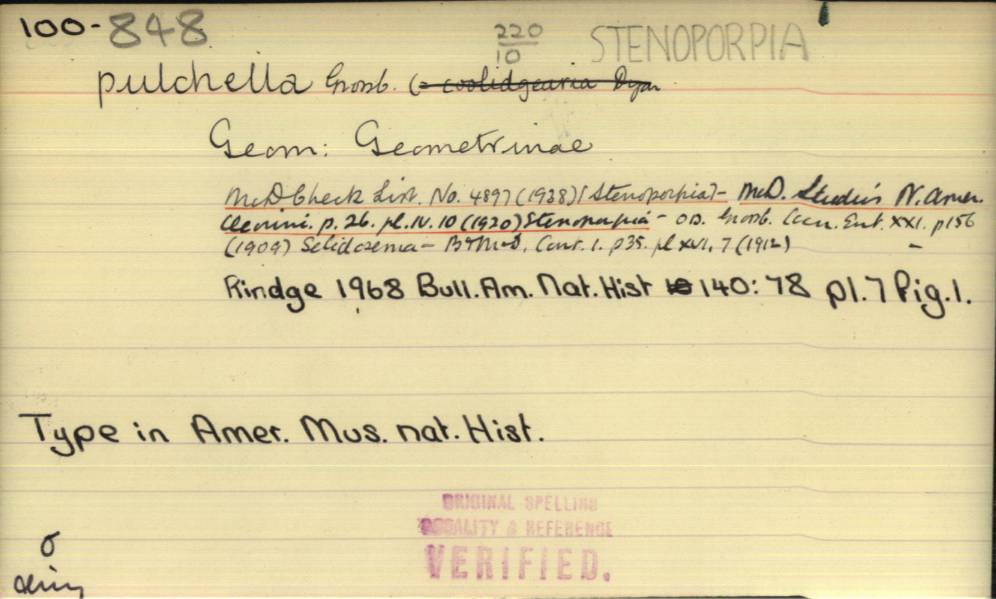 100-848 220/10 STENOPORPIA
pulchella Grossb. (= coolidgearia Dyar
Geom: Geometrinae
McD Check List. No. 4897 (1938) (Stenoporpia) - McD. Studies N. Amer.
Cleorini. p. 26. pl. IV. 10 (1920) Stenoporpia - O.D. Grossb. Can. Ent. XXI. p156
(1909) Selidosema - B+McD. Cont. 1. p35. pl XVI. 7 (1912) -
Rindge 1968 Bull. Am. Nat. Hist 140: 78 pl. 7 fig. 1.
Type in Amer. Mus. nat. Hist.
ORIGINAL SPELLING
LOCALITY & REFERENCE
VERIFIED.